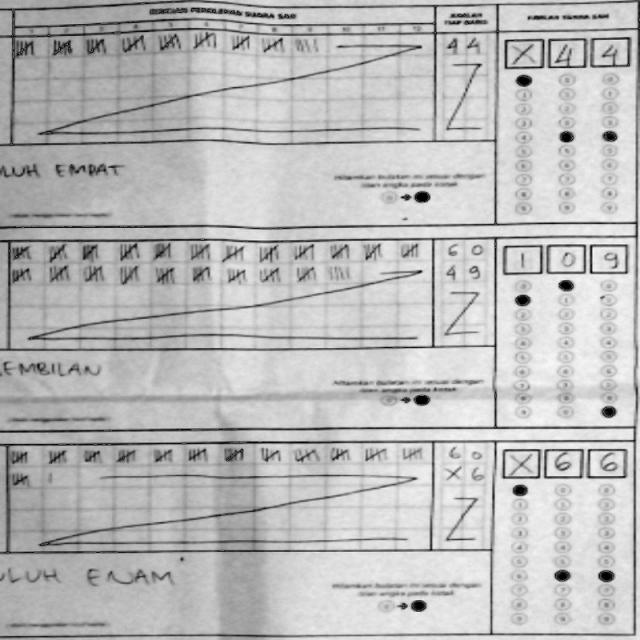 RINCIAN PEROLEHAN SUARA SAH
JUMLAH TIAP BARIS
JUMLAH SUARA SAH
1 2 3 4 5 6 7 8 9 10 11 12
44
X44
LUH EMPAT
Hitamkan bulatan ini sesuai dengan
isian angka pada kotak
60
49
109
EMBILAN
Hitamkan bulatan ini sesuai dengan
isian angka pada kotak
60
X6
X66
ULUH ENAM
Hitamkan bulatan ini sesuai dengan
isian angka pada kotak